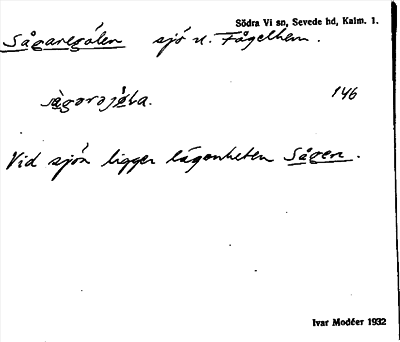 Södra Vi sn, Sevede hd, Kalm. l.
Sågaregölen sjö v. Fågelhem.
146
Vid sjön ligger lägenheten Sågen.
Ivar Modéer 1932